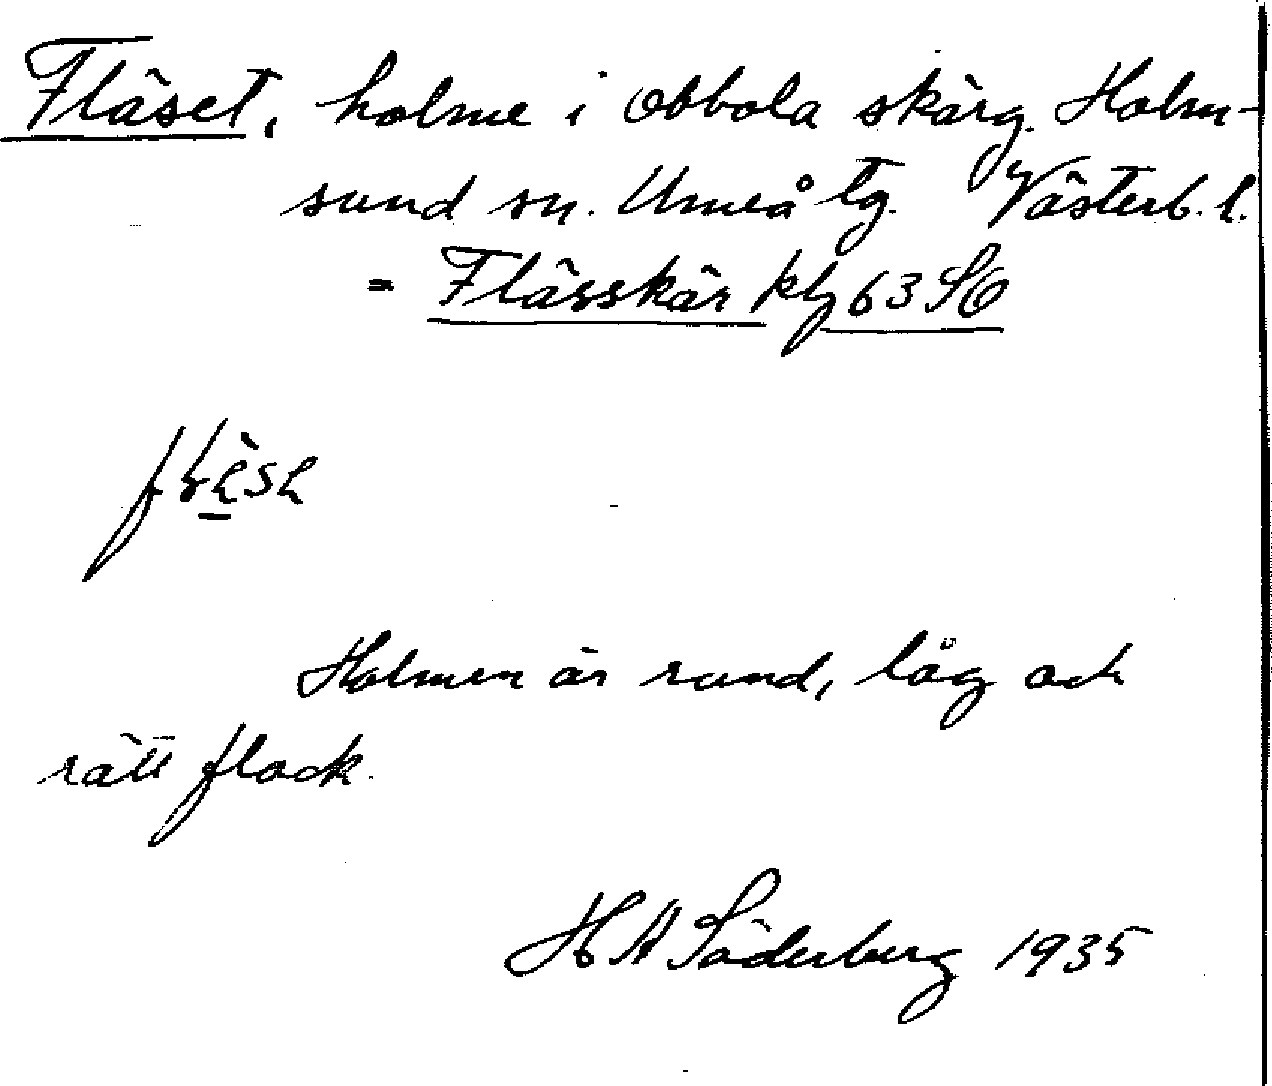 Fläset, holme i Obbola skärg. Holm-
sund sn. Umeå tg. Västerb. l.
= Flässkär kbl 63 SO
Holmen är rund, låg och
rätt flack.
H A Söderberg 1935